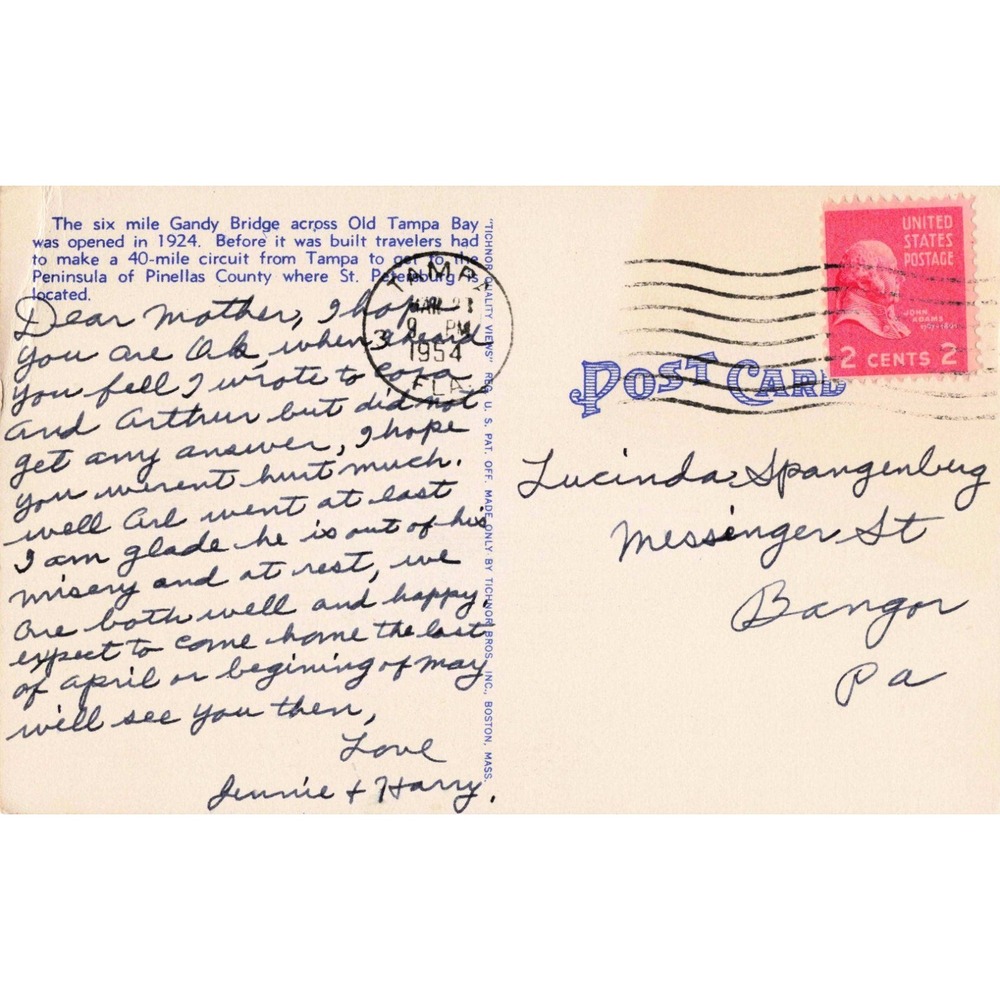 The six mile Gandy Bridge across Old Tampa Bay
was opened in 1924. Before it was built travelers had
to make a 40-mile circuit from Tampa to get to the
Peninsula of Pinellas County where St. Petersburg is
located.
Dear Mother, I hope
you are Ok, when I heard
you fell I wrote to Cora
and Arthur but did not
get any answer, I hope
you werent hurt much.
well Arl went at last
I am glade he is out of his
misery and at rest, we
are both well and happy
expect to come home the last
of april or begining of may
will see you then,
Love
Jennie + Harry.
"TICHNOR QUALITY VIEWS" REG. U. S. PAT. OFF. MADE ONLY BY TICHNOR BROS. INC., BOSTON, MASS.
TAMPA
MAR 23
9 PM
1954
FLA.
UNITED
STATES
POSTAGE
JOHN
ADAMS
2 CENTS 2
POST CARD
Lucinda Spangenberg
Messinger St
Bangor
Pa